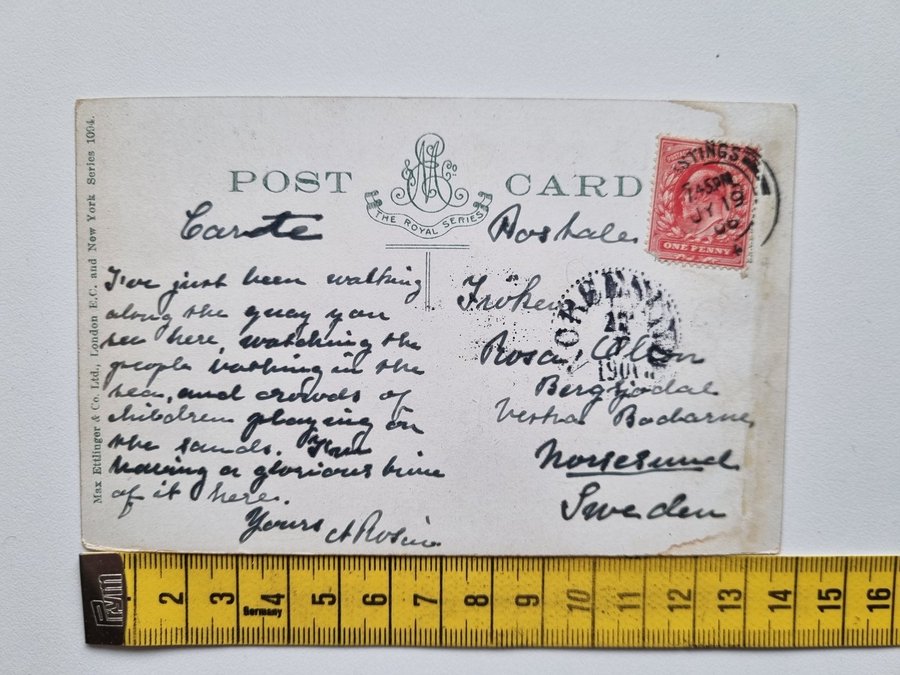 Max Ettlinger & Co. Ltd., London E.C. and New York Series 1094.
POST CARD
THE ROYAL SERIES
Carte Postale
I've just been walking
along the quay you
see here, watching the
people bathing in the
sea, and crowds of
children playing on
the sands. I'm
having a glorious time
of it here.
Yours A Rosin
Fröken
Rosa
Vestra Bodarne
Norsesund
Sweden
ASTINGS
7.45PM
JY 19
06
ONE PENNY
2 3 4 5 6 7 8 9 10 11 12 13 14 15 16
Germany